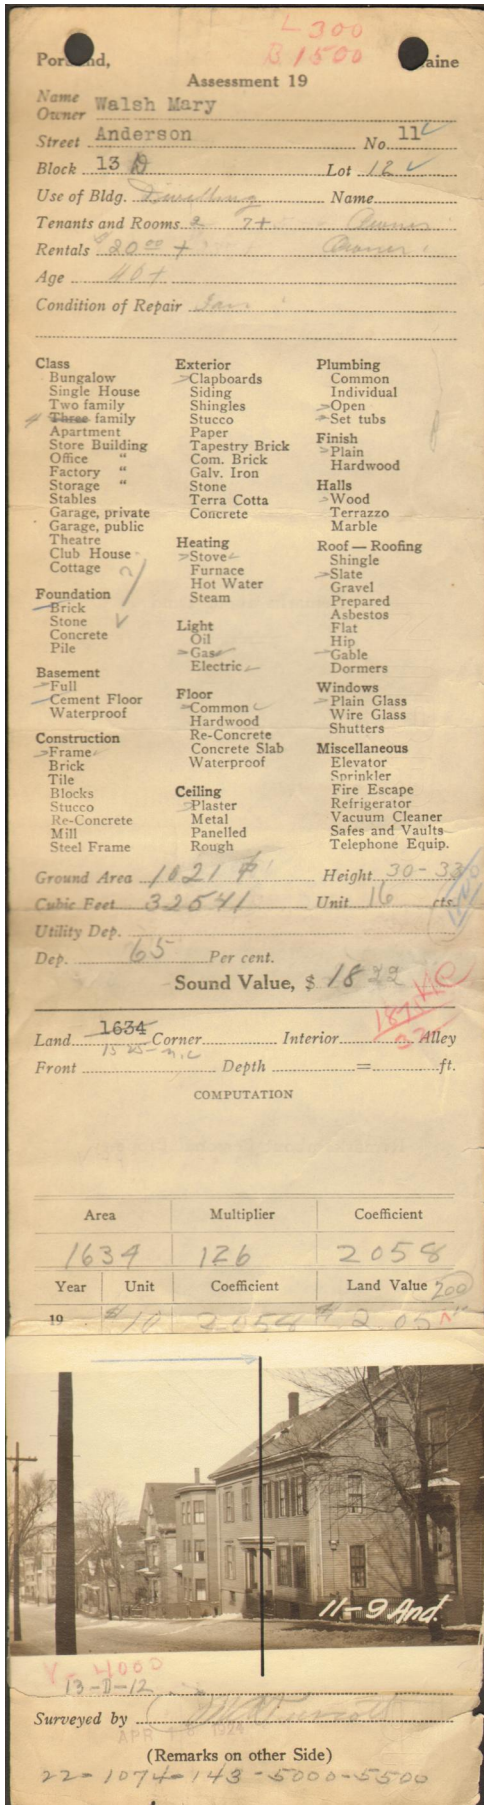 L 300
B 1500
Portland, Maine
Assessment 19
Name
Owner Walsh Mary
Street Anderson No. 11
Block 13 D Lot 12
Use of Bldg. Dwelling Name
Tenants and Rooms 2 7+ Owner
Rentals $20 00 + Owner
Age 40+
Condition of Repair Fair
Class
Bungalow
Single House
Two family
Three family
Apartment
Store Building
Office "
Factory "
Storage "
Stables
Garage, private
Garage, public
Theatre
Club House
Cottage
Foundation
Brick
Stone
Concrete
Pile
Basement
Full
Cement Floor
Waterproof
Construction
Frame
Brick
Tile
Blocks
Stucco
Re-Concrete
Mill
Steel Frame
Exterior
Clapboards
Siding
Shingles
Stucco
Paper
Tapestry Brick
Com. Brick
Galv. Iron
Stone
Terra Cotta
Concrete
Heating
Stove
Furnace
Hot Water
Steam
Light
Oil
Gas
Electric
Floor
Common
Hardwood
Re-Concrete
Concrete Slab
Waterproof
Ceiling
Plaster
Metal
Panelled
Rough
Plumbing
Common
Individual
Open
Set tubs
Finish
Plain
Hardwood
Halls
Wood
Terrazzo
Marble
Roof — Roofing
Shingle
Slate
Gravel
Prepared
Asbestos
Flat
Hip
Gable
Dormers
Windows
Plain Glass
Wire Glass
Shutters
Miscellaneous
Elevator
Sprinkler
Fire Escape
Refrigerator
Vacuum Cleaner
Safes and Vaults
Telephone Equip.
Ground Area 1021 Height 30-33
Cubic Feet 32541 Unit 16 cts.
Utility Dep.
Dep. 65 Per cent.
Sound Value, $ 1822
Land 1634 Corner Interior Alley
Front Depth = ft.
COMPUTATION
Area Multiplier Coefficient
1634 126 2058
Year Unit Coefficient Land Value 200
19 $10 2058 $205
11-9 And.
V-4000
13-D-12
Surveyed by
APR 1924
(Remarks on other Side)
22-1074-143-5000-5500